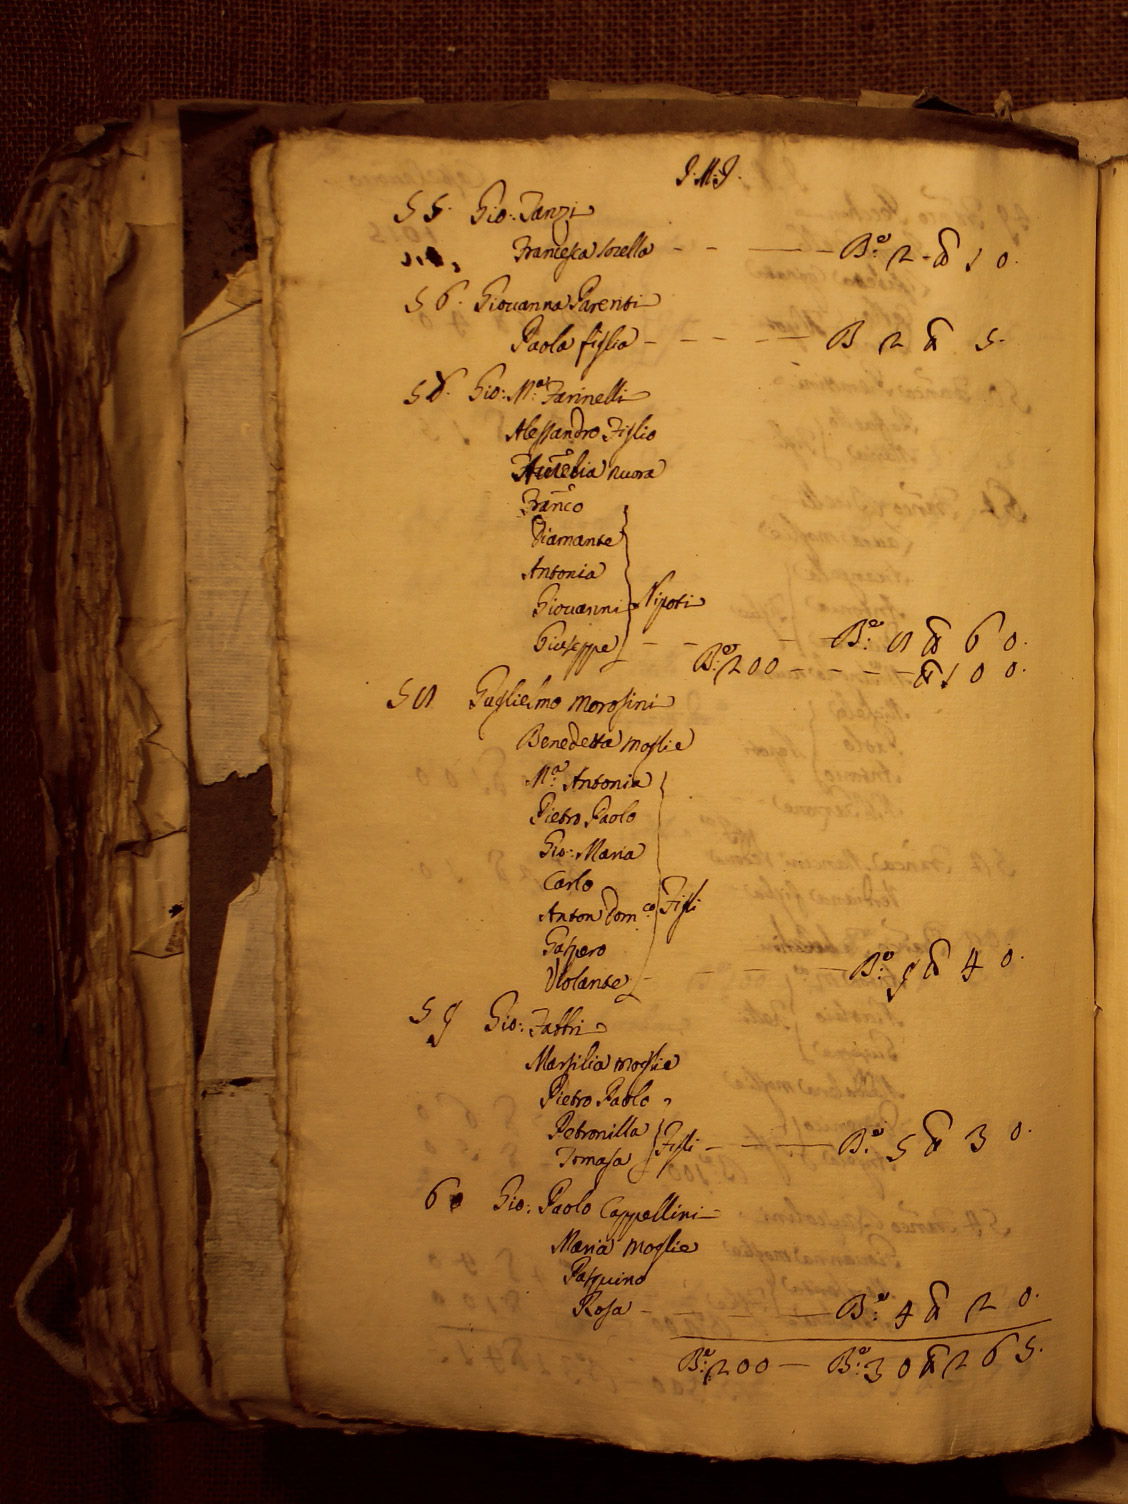 J.M.J.
55. Gio: Tanzi
Francesca sorella - - — B.e 2 - ₰ 10.
56. Giovanna Parenti
Paola figlia - - - — B 2 ₰ 5.
Gio: M.a Farinelli
Alessandro Figlio
Aurelia nuora
Franco
Diamante
Antonia
Giovanni Nipoti
Giuseppe - - - B.e 8 ₰ 60.
B.e 200 - - - - ₰ 100.
58 Guglielmo Morosini
Benedetta moglie
M.a Antonia
Pietro Paolo
Gio: Maria
Carlo
Anton Dom.co Figli
Gaspero
Violante - - — B.e 9 ₰ 40.
59 Gio: Fabbri
Marsilia moglie
Pietro Paolo
Petronilla Figli - — B.e 5 ₰ 30.
Tomasa
60 Gio: Paolo Cappellini
Maria moglie
Pasquino
Rosa - — B.e 4 ₰ 20.
B.e 200 — B.e 30 ₰ 265.